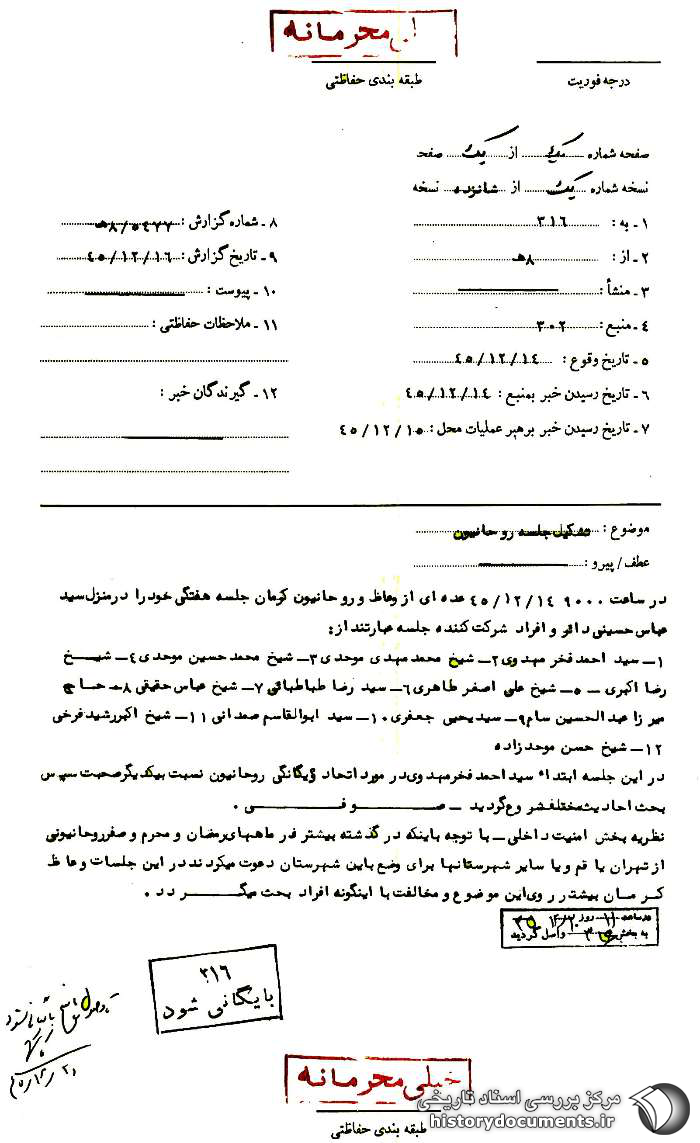 خیلی محرمانه
درجه فوریت
طبقه بندی حفاظتی
صفحه شماره یک از یک صفحه
نسخه شماره یک از شانزده نسخه
۱ـ به : ۳۱۶
۲ـ از : ۸هـ
۳ـ منشأ :
۴ـ منبع : ۳۰۲
۵ـ تاریخ وقوع : ۴۵/۱۲/۱۴
۶ـ تاریخ رسیدن خبر بمنبع : ۴۵/۱۲/۱۴
۷ـ تاریخ رسیدن خبر برهبر عملیات محل : ۴۵/۱۲/۱۵
۸ـ شماره گزارش : ۵۴۷۷/۸هـ
۹ـ تاریخ گزارش : ۴۵/۱۲/۱۶
۱۰ـ پیوست :
۱۱ـ ملاحظات حفاظتی :
۱۲ـ گیرندگان خبر :
موضوع : تشکیل جلسه روحانیون
عطف/پیرو :
در ساعت ۹۰۰۰ ۴۵/۱۲/۱۴ عده ای از وعاظ و روحانیون کرمان جلسه هفتگی خود را در منزل سید
عباس حسینی دائر و افراد شرکت کننده جلسه عبارتند از :
۱ـ سید احمد فخر مهدوی ۲ـ شیخ محمد مهدی موحدی ۳ـ شیخ محمد حسین موحدی ۴ـ شیخ
رضا اکبری ـ ۵ـ شیخ علی اصغر طاهری ۶ـ سید رضا طباطبائی ۷ـ شیخ عباس حقیقی ۸ـ حاج
میرزا عبدالحسین سام ۹ـ سید یحیی جعفری ۱۰ـ سید ابوالقاسم صمدانی ۱۱ـ شیخ اکبر رشید فرخی
۱۲ـ شیخ حسن موحدزاده
در این جلسه ابتداء سید احمد فخر مهدوی در مورد اتحاد ویگانگی روحانیون نسبت بیکدیگر صحبت سپس
بحث احادیث مختلف شروع گردید ـ صوفی .
نظریه بخش امنیت داخلی ـ با توجه باینکه در گذشته بیشتر در ماههای رمضان و محرم و صفر روحانیونی
از تهران یا قم و یا سایر شهرستانها برای وعظ باین شهرستان دعوت میکردند در این جلسات وعاظ
کرمان بیشتر روی این موضوع و مخالفت با اینگونه افراد بحث میگردد .
در ساعت ۱۱ روز
به بخش ۳۱۶ واصل گردید
۳۱۶
بایگانی شود
خیلی محرمانه
طبقه بندی حفاظتی
مرکز بررسی اسناد تاریخی
historydocuments.ir